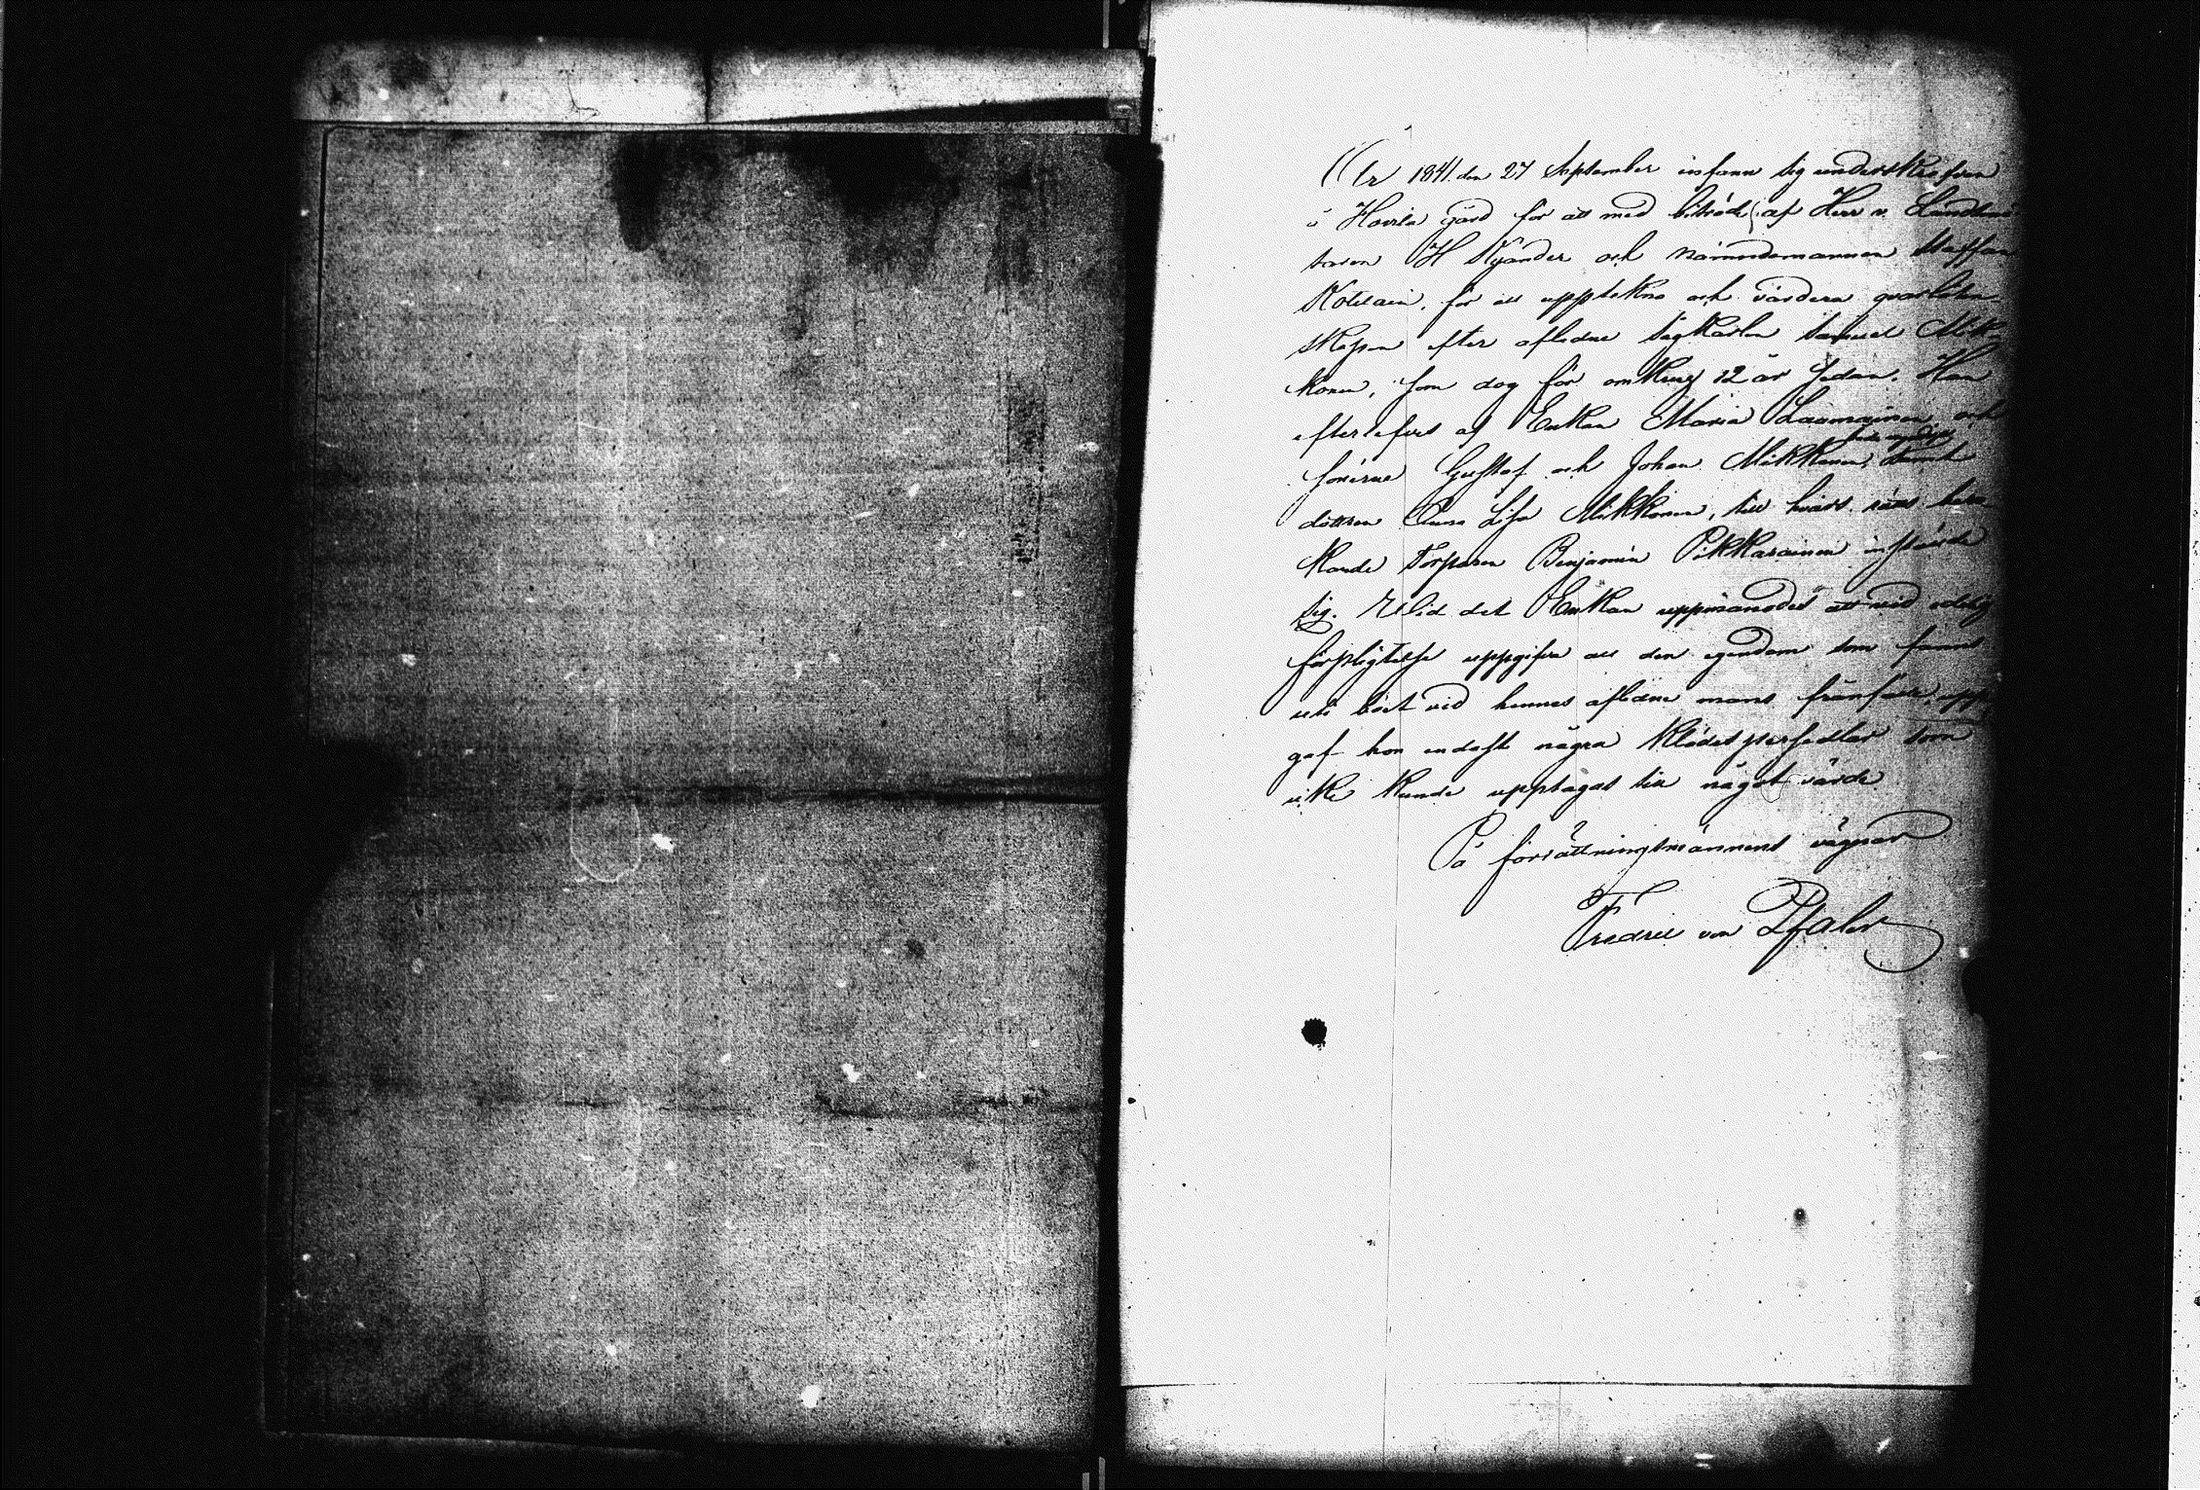 År 1841. den 27 September infann sig underskrefven
å Hovila gård för att med biträde af Herr v. Landtmä-
taren H Kyander och Nämndemannen Staffan
Kotilain, för att uppteckna och värdera qvarlåten-
skapen efter aflidne sågkarlen Samuel Mik-
konen, som dog för omkring 12 år sedan. Han
efterlefves af Enkan Maria Laamainen och
sönerne Gustaf och Johan Mikkonen, samt
dottren Anna Lisa Mikkonen, till hvars rätts beva-
kande Torparen Benjamin Pikkarainen inställde
sig. Vid det Enkan uppmanades att vid edelig
förpligtelse uppgifva all den egendom som fanns
uti boet vid hennes aflidne mans frånfälle, upp-
gaf hon endast några klädespersedlar som
icke kunde upptagas till något värde.
På förrättningsmännens vägnar
Fredric von Pfaler